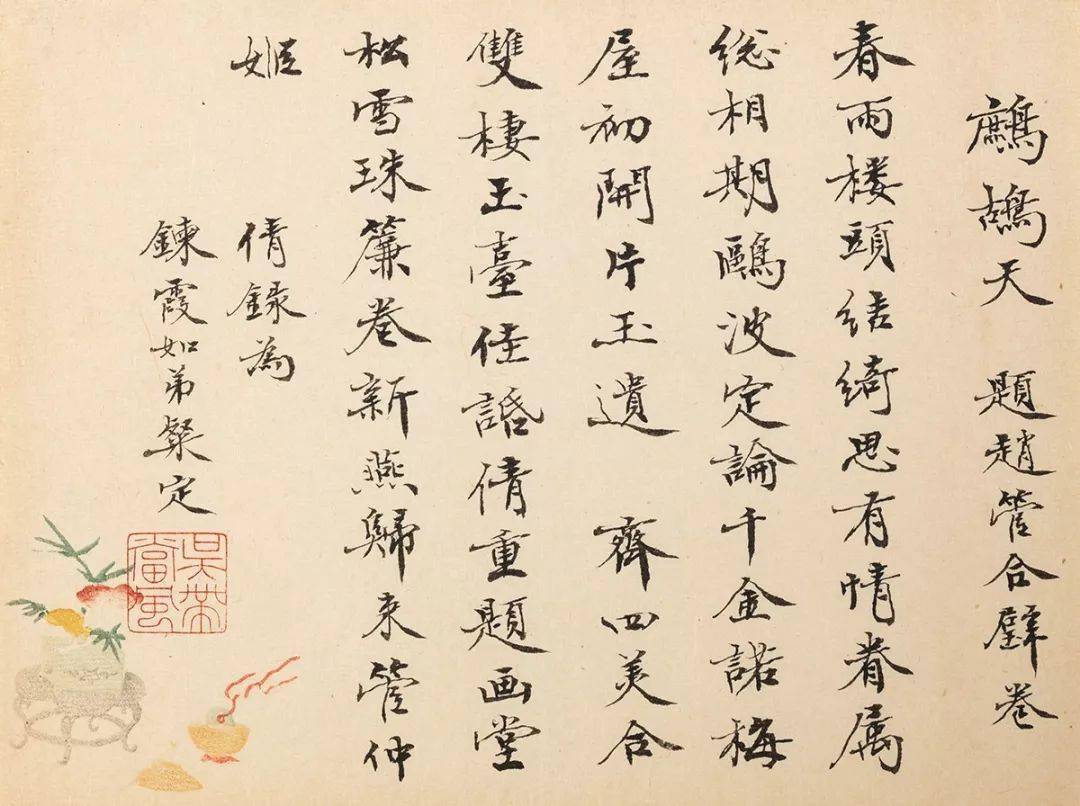 鷓鴣天 題趙管合璧卷
春雨楼頭結綺思有情眷属
總相期鷗波定論千金諾梅
屋初開片玉遺 齊四美合
雙棲玉臺佳話倩重題画堂
松雪珠簾卷新燕歸来管仲
姬
倩錄為
鍊霞如弟粲定
吳帶當風